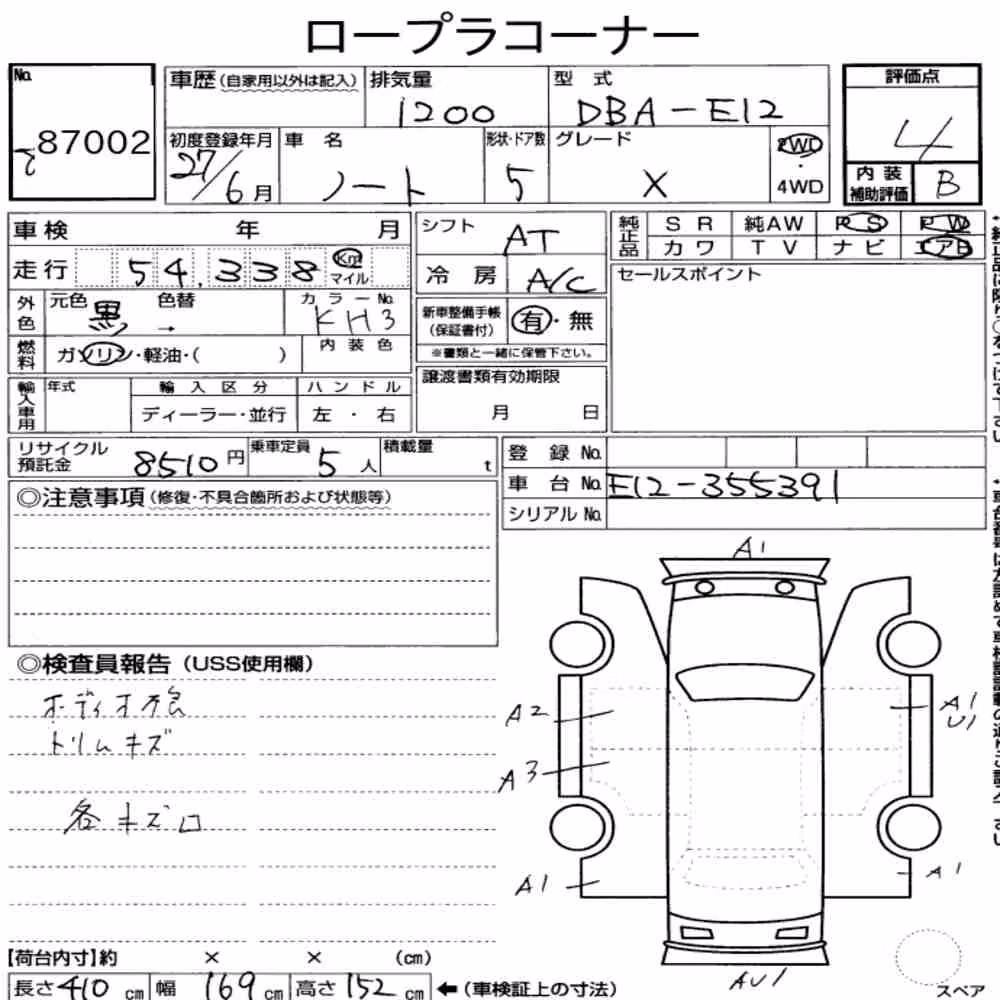 ロープラコーナー
No.
87002
車歴(自家用以外は記入)
排気量
1200
型 式
DBA-E12
評価点
4
初度登録年月
27/6月
車 名
ノート
形状・ドア数
5
グレード
X
2WD
・
4WD
内 装
補助評価
B
車検 年 月
走行 54,338 Km
マイル
シフト
AT
冷 房
A/C
純正品
S R 純AW P S P W
カ ワ T V ナ ビ エアB
セールスポイント
外色
元色 黒
色替 →
カ ラ ー No.
KH3
新車整備手帳
(保証書付)
有・無
※書類と一緒に保管下さい。
燃料
ガソリン・軽油・( )
内 装 色
譲渡書類有効期限
月 日
輸入車用
年式
輸 入 区 分
ハ ン ド ル
ディーラー・並行
左 ・ 右
リサイクル
預託金
8510円
乗車定員
5人
積載量
t
登 録 No.
車 台 No. E12-355391
シリアル No.
◎注意事項(修復・不具合箇所および状態等)
A1
◎検査員報告(USS使用欄)
トリムキズ
各キズ
A2
A1
U1
A3
A1
A1
AU1
【荷台内寸】約 × × (cm)
長さ410cm 幅169cm 高さ152cm ←(車検証上の寸法)
スペア